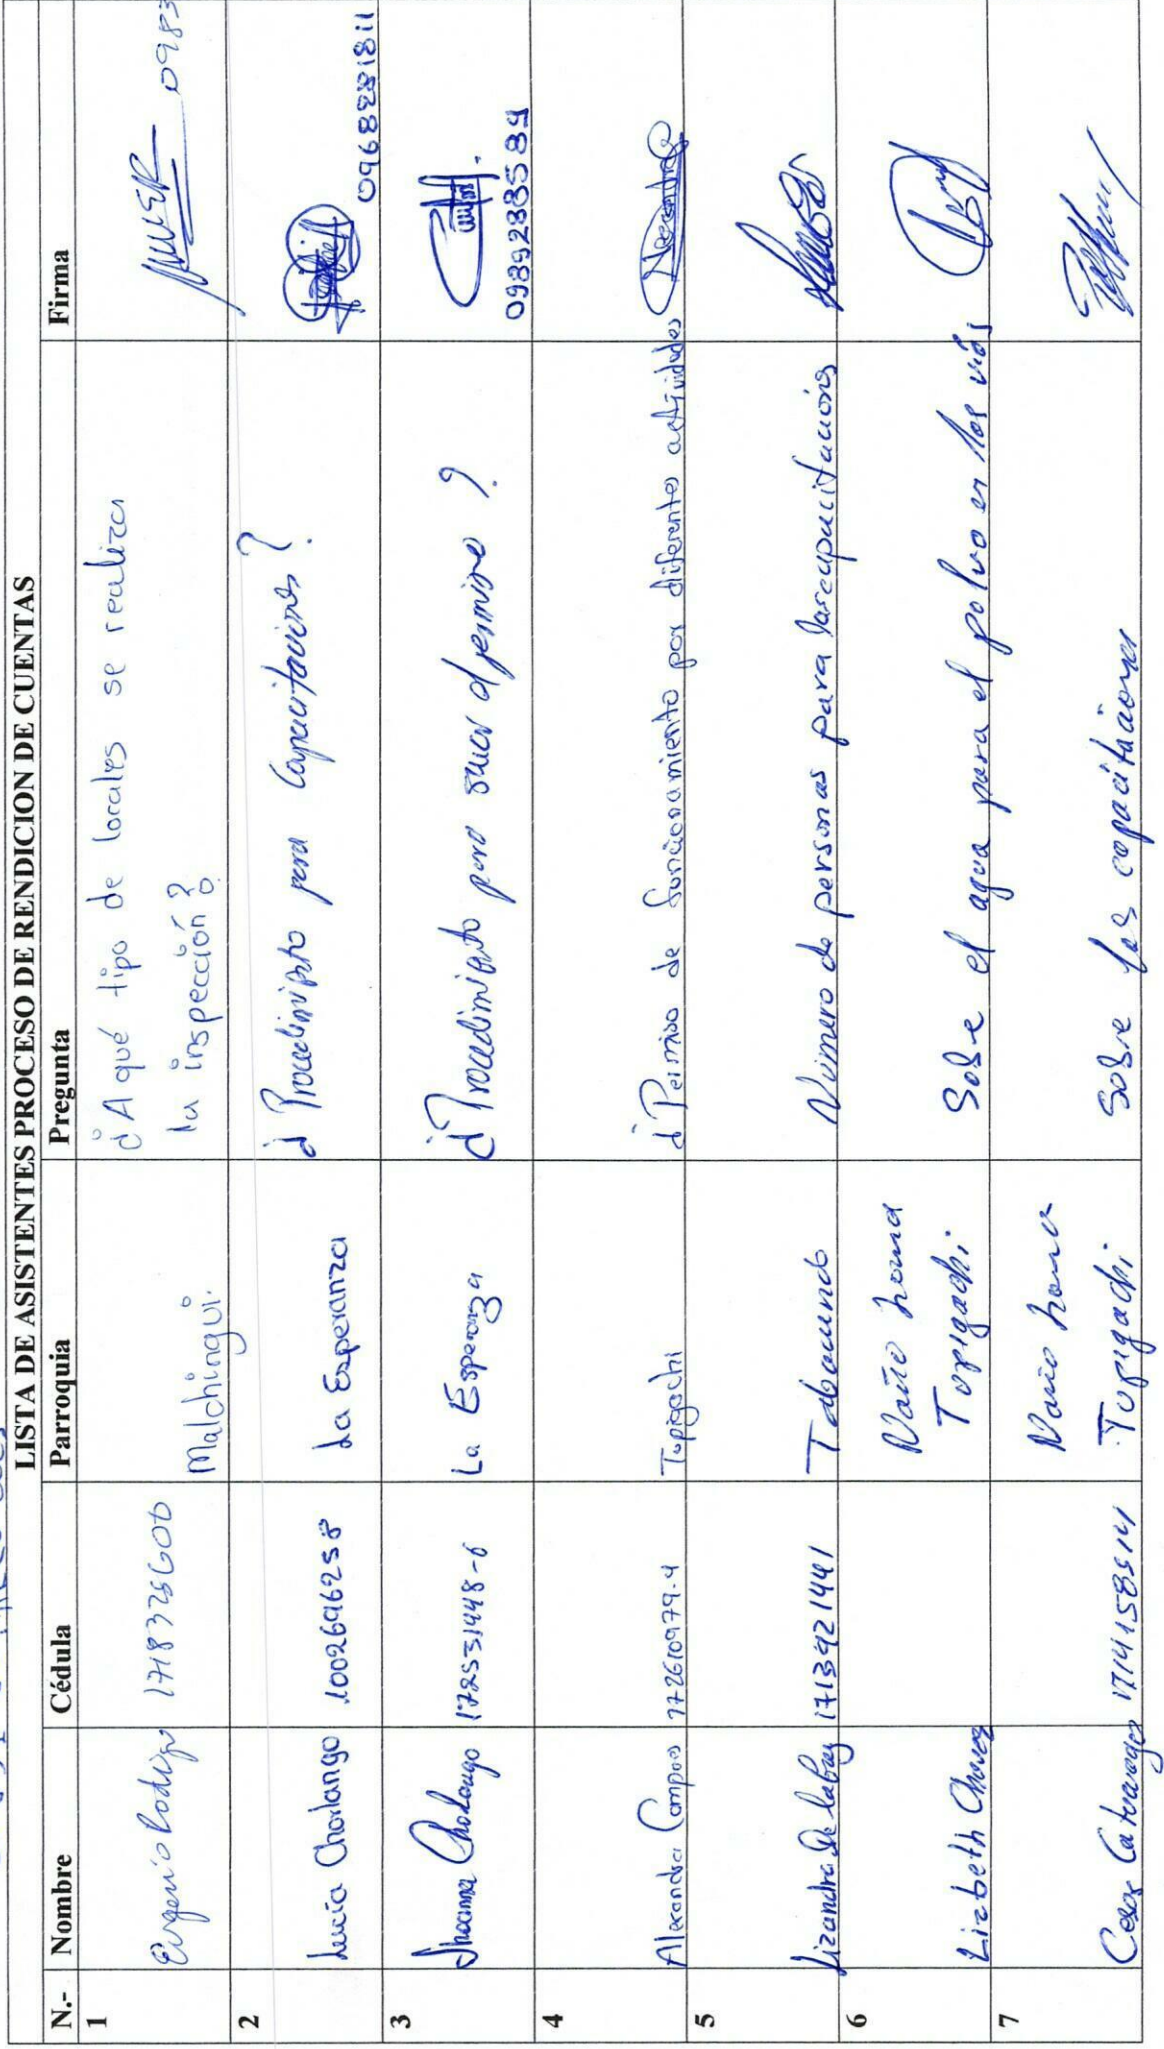 LISTA DE ASISTENTES PROCESO DE RENDICION DE CUENTAS
N.- Nombre Cédula Parroquia Pregunta Firma
1 Eugenio Rodrigo Malchinguí. ¿A qué tipo de locales se realiza
la inspección? 0983
2 Lucía Cholango 1002696258 La Esperanza ¿Procedimiento para Capacitaciones?
0968281811
3 Jhoanna Cholango 172531448-6 La Esperanza ¿Procedimiento para sacar el permiso?
0989288589
4 Alexandra Campos 172610979-4 Tupigachi ¿Permiso de funcionamiento por diferentes actividades
5 Lizandra 1713921441 Tabacundo Número de personas para las capacitacions
6 Lizbeth Chavez Tupigachi Sobre el agua para el polvo en las vias
7 Cesar 1714158514 Tupigachi Sobre las capacitaciones